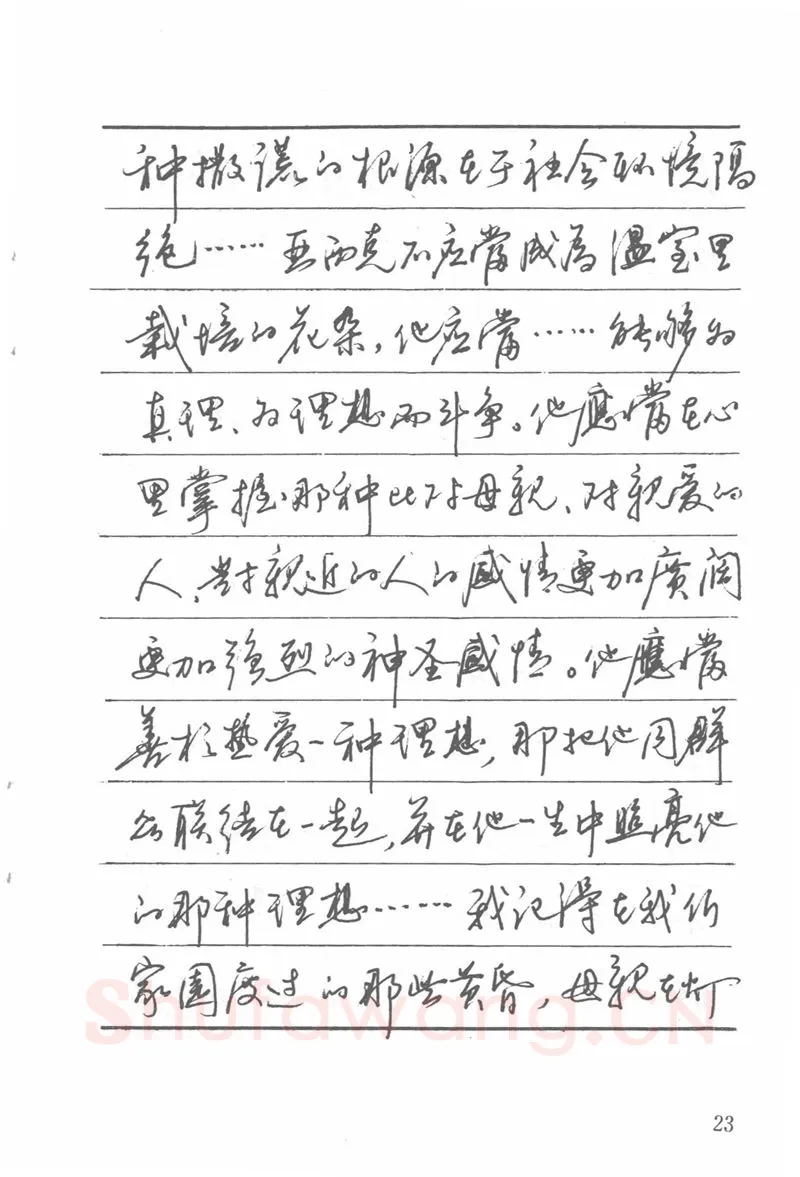 种撒谎的根源在于社会环境隔
绝……亚西克不应當成为温室里
栽培的花朵,他应當……能够为
真理、为理想而斗争。他應當在心
里掌握那种比对母親、对親爱的
人、對親近的人的感情更加廣阔
更加强烈的神圣感情。他應當
善於热爱一种理想,那把他同群
众联结在一起,并在他一生中照亮他
的那种理想……我记得在我们
家園度过的那些黄昏,母親在灯
Shufawang.CN
23